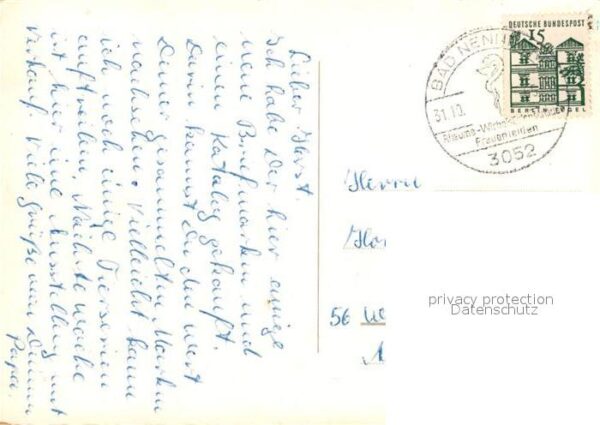 Lieber Horst.
Ich habe Dir hier einige
neue Briefmarken und
einen Katalog gekauft.
Darin kannst Du den Wert
Deiner gesammelten Marken
nachsehen. Vielleicht kann
ich noch einige Tierserien
auftreiben. Nächste Woche
ist hier eine Ausstellung mit
Verkauf. Viele Grüße von Deinem
Papa.
DEUTSCHE BUNDESPOST
15
BERLIN-TEGEL
BAD NENN
31.10.
Rheuma-
Frauenleiden
3052
Herrn
56
privacy protection
Datenschutz